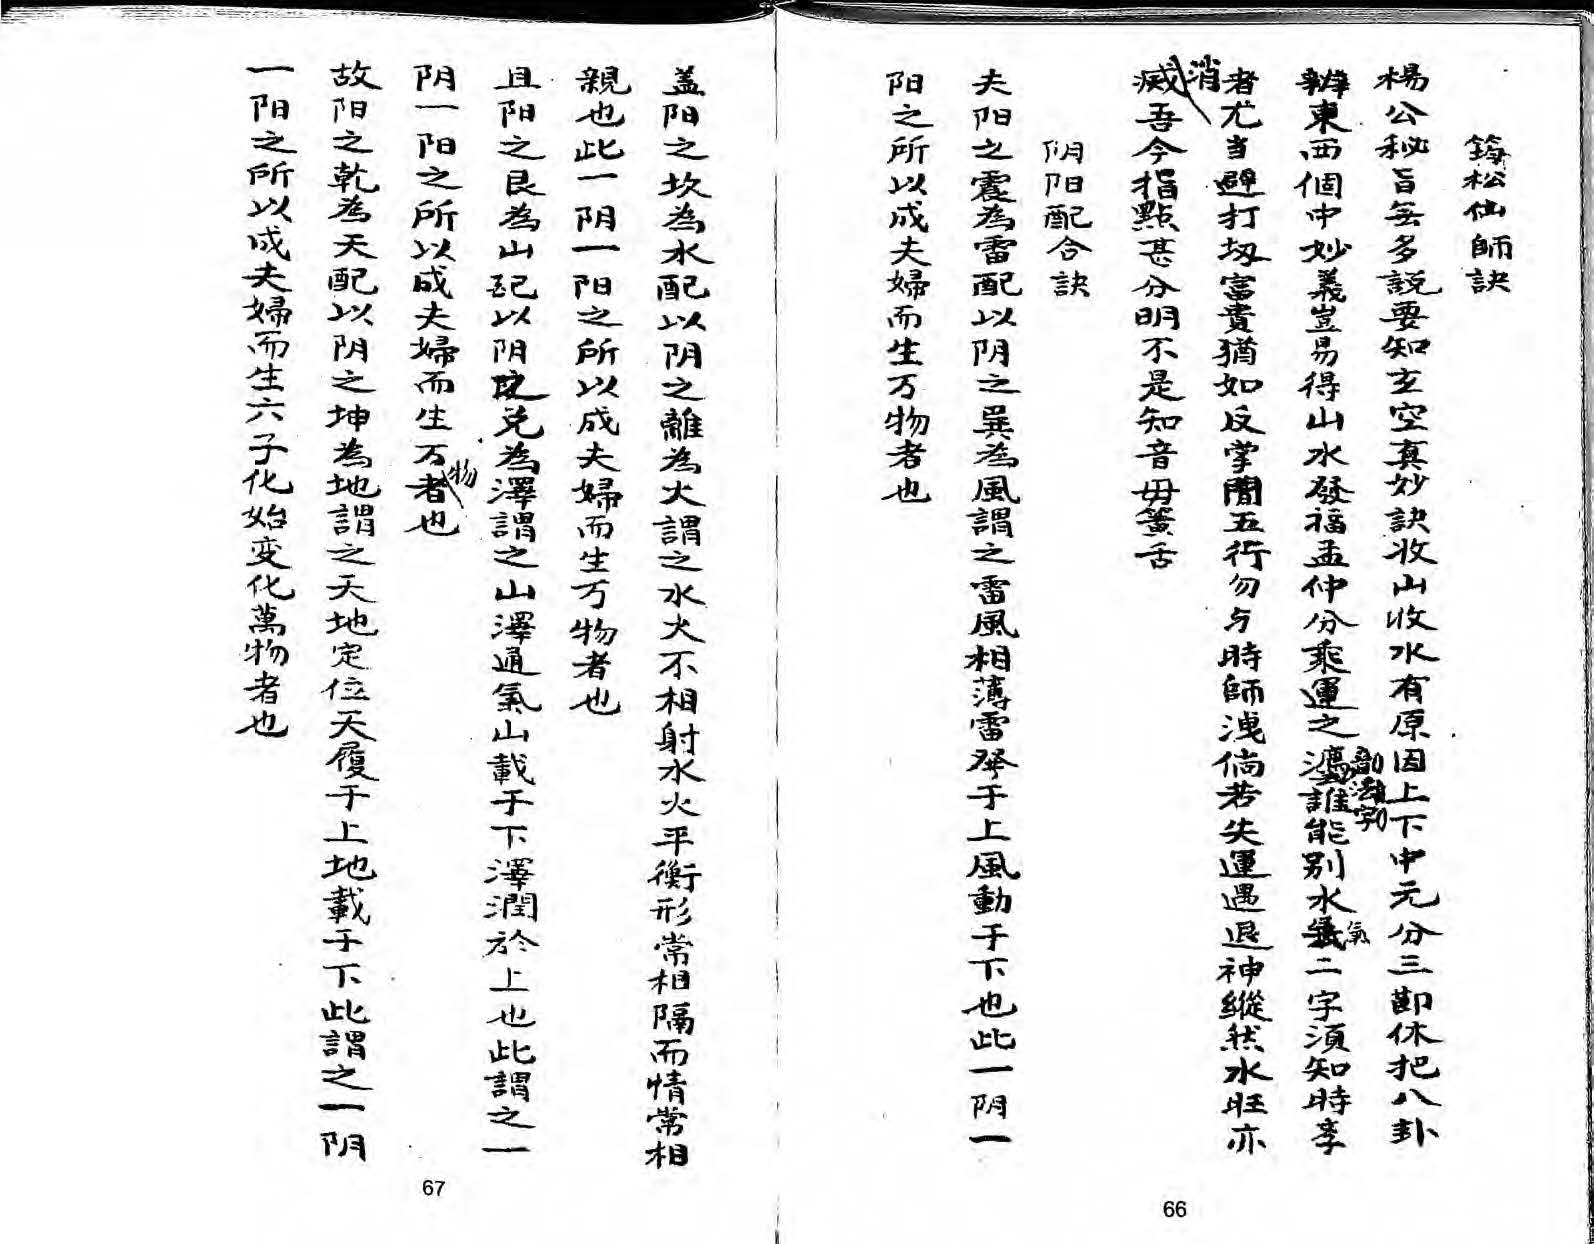 筠松仙師訣
楊公秘旨每多説要知玄空真妙訣收山收水有原因上下中元分三節休把八卦
辨東西個中妙義豈易得山水發福孟仲分乘運之誰能別水氣二字須知時李
者尤当避打劫富貴猶如反掌間五行勿与時師洩倘若失運遇退神縱然水旺亦
消滅吾今指點甚分明不是知音毋簧舌
阴阳配合訣
夫阳之震為雷配以阴之巽為風謂之雷風相薄雷發于上風動于下也此一阴一
阳之所以成夫婦而生万物者也
66
盖阳之坎為水配以阴之離為火謂之水火不相射水火平衡形常相隔而情常相
親也此一阴一阳之所以成夫婦而生万物者也
且阳之艮為山配以阴之兑為澤謂之山澤通氣山載于下澤潤於上也此謂之一
阴一阳之所以成夫婦而生万物者也
故阳之乾為天配以阴之坤為地謂之天地定位天履于上地載于下此謂之一阴
一阳之所以成夫婦而生六子化始变化萬物者也
67